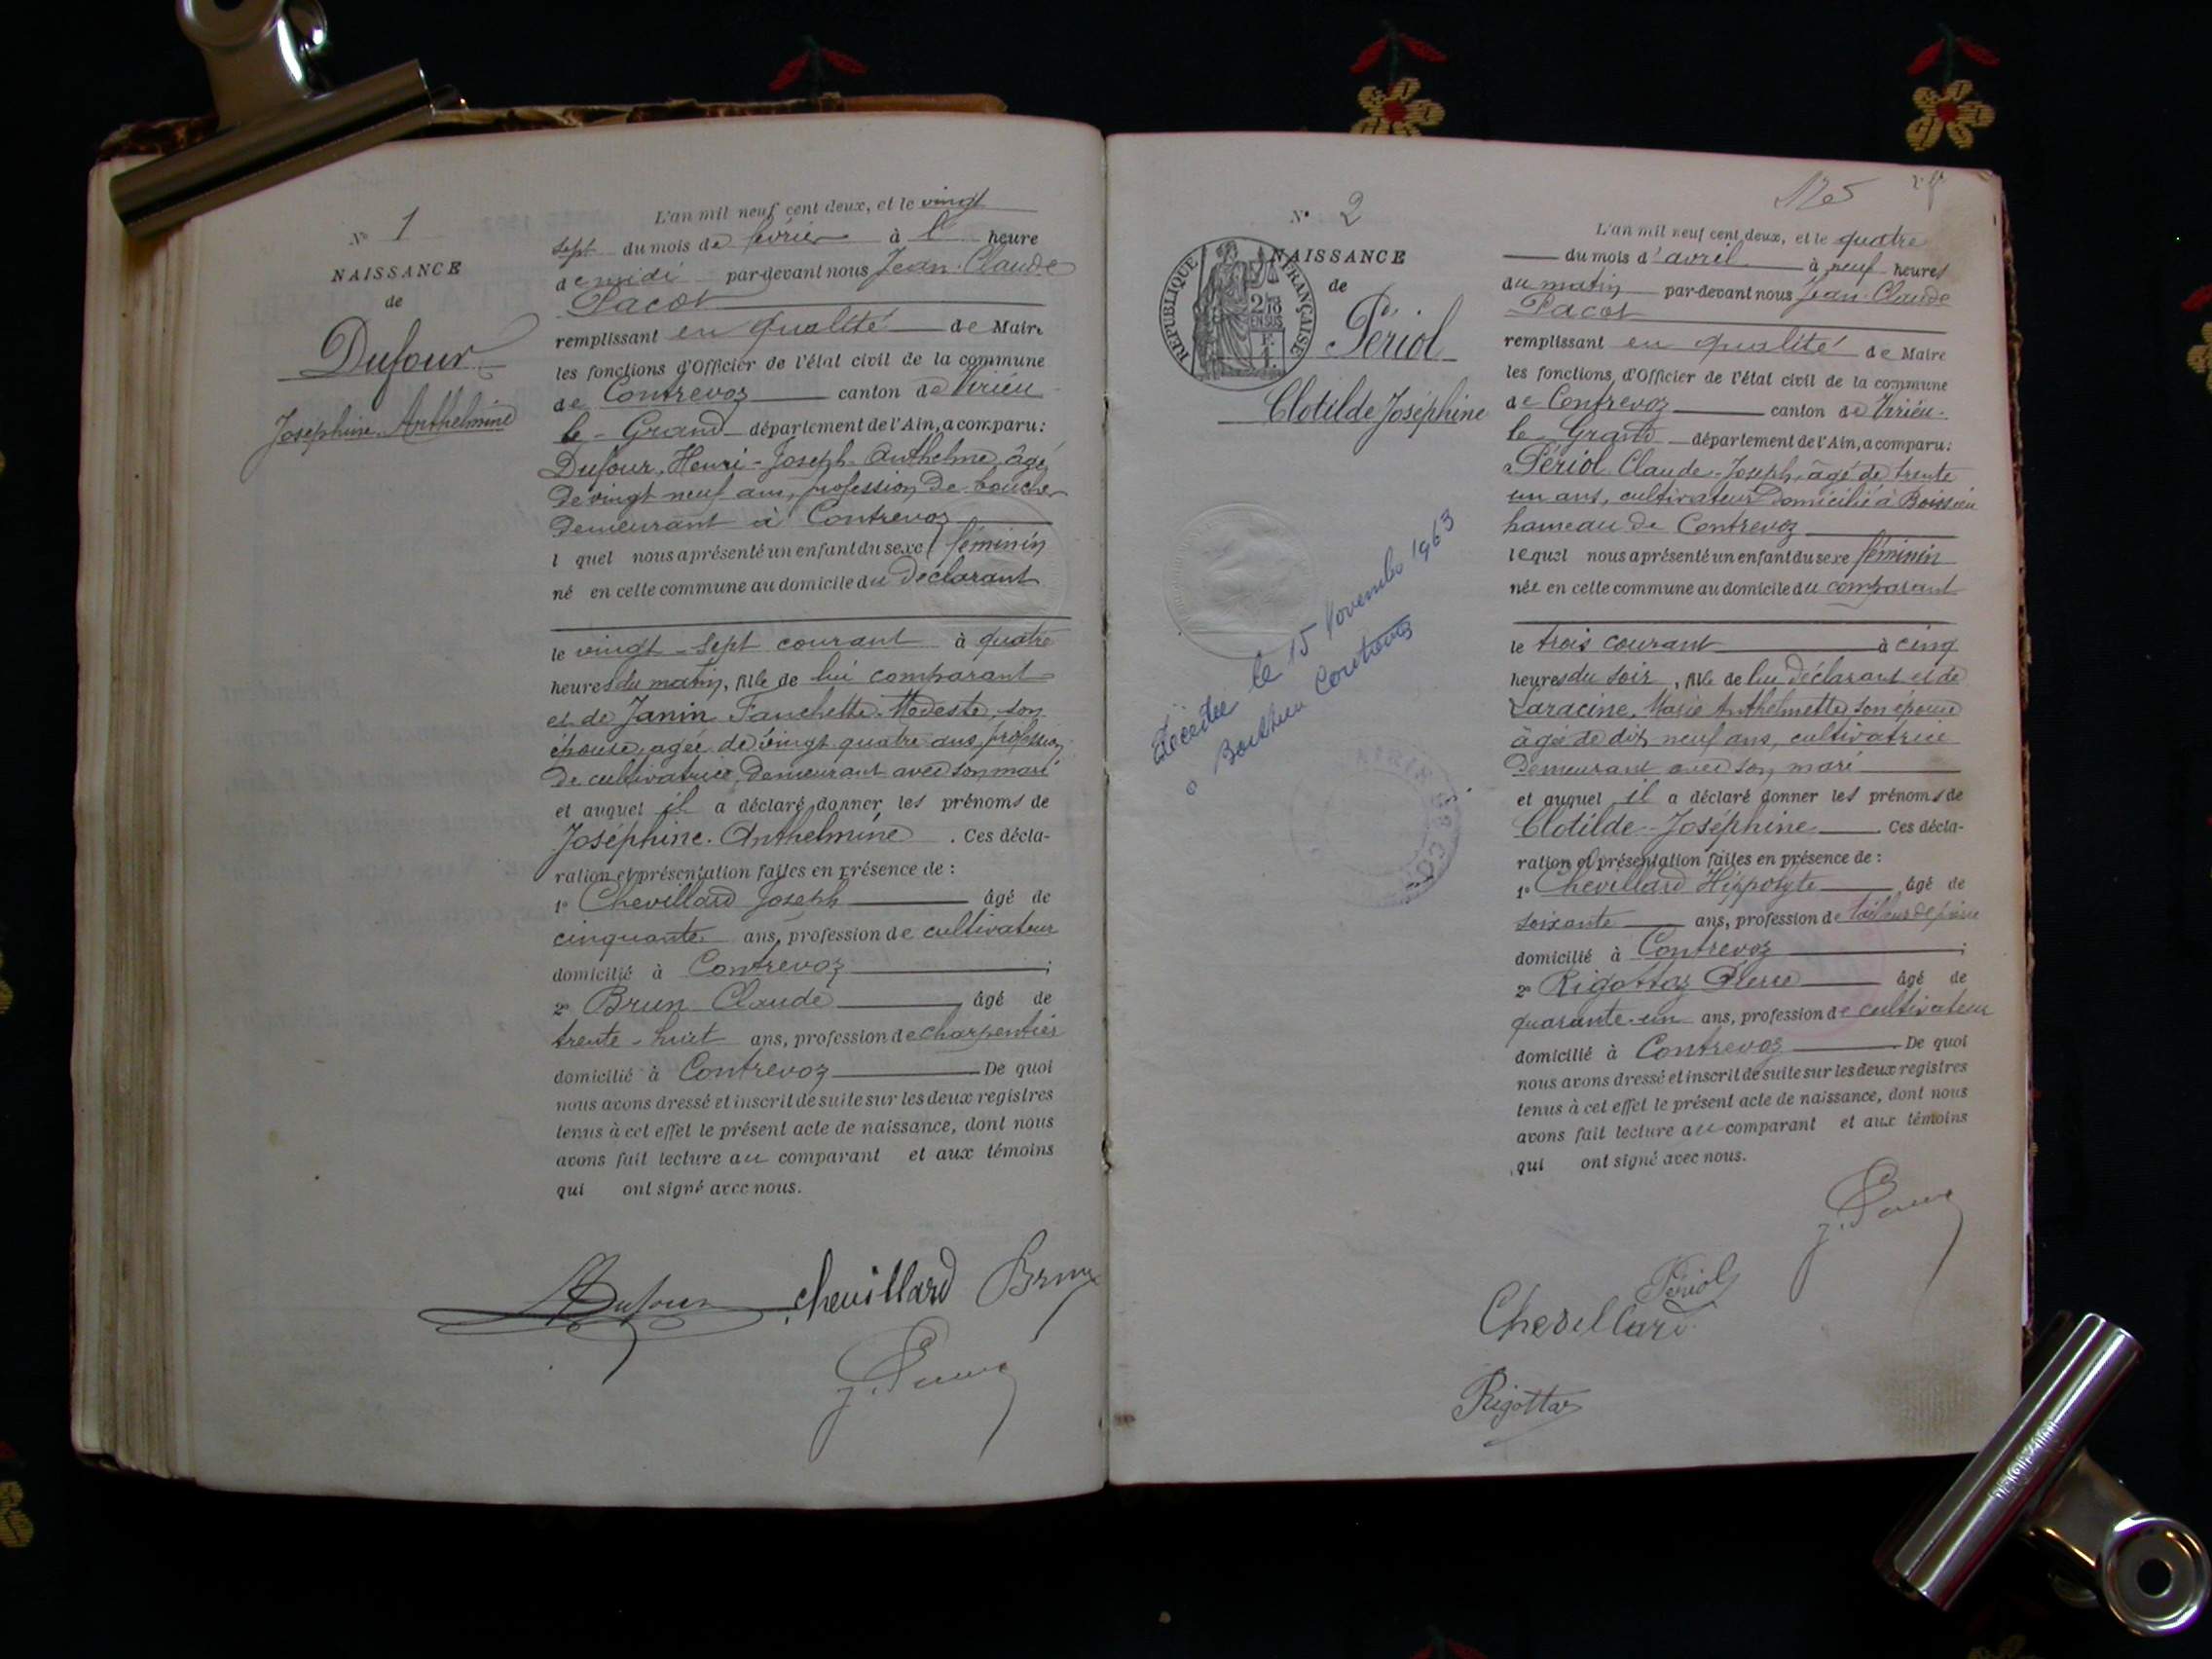 N° 1
NAISSANCE
de
Dufour
Joséphine Anthelmine
L'an mil neuf cent deux, et le vingt
sept du mois de février à l' heure
de midi par-devant nous Jean-Claude
Pacot
remplissant en qualité de Maire
les fonctions d'Officier de l'état civil de la commune
de Contrevoz canton de Virieu
le-Grand département de l'Ain, a comparu:
Dufour, Henri-Joseph-Anthelme, âgé
de vingt neuf ans, profession de boucher
demeurant à Contrevoz
l quel nous a présenté un enfant du sexe féminin
né en cette commune au domicile du déclarant
le vingt-sept courant à quatre
heures du matin, fille de lui comparant
et de Janin Fanchette-Modeste, son
épouse, agée de vingt quatre ans, profession
de cultivatrice, demeurant avec son mari
et auquel il a déclaré donner les prénoms de
Joséphine-Anthelmine . Ces décla-
ration et présentation faites en présence de :
1° Chevillard Joseph âgé de
cinquante ans, profession de cultivateur
domicilié à Contrevoz ;
2° Brun Claude , âgé de
trente-huit ans, profession de charpentier
domicilié à Contrevoz De quoi
nous avons dressé et inscrit de suite sur les deux registres
tenus à cet effet le présent acte de naissance, dont nous
avons fait lecture au comparant et aux témoins
qui ont signé avec nous.
Dufour Chevillard Brun
N° 2
NAISSANCE
de
RÉPUBLIQUE FRANÇAISE
2/10
EN SUS
Périol
Clotilde Joséphine
Décédée le 15 Novembre 1963
L'an mil neuf cent deux, et le quatre
du mois d'avril à neuf heures
du matin par-devant nous Jean-Claude
Pacot
remplissant en qualité de Maire
les fonctions d'Officier de l'état civil de la commune
de Contrevoz canton de Virieu-
le-Grand département de l'Ain, a comparu:
Périol Claude-Joseph, âgé de trente
un ans, cultivateur domicilié à Boissieu
hameau de Contrevoz
lequel nous a présenté un enfant du sexe féminin
née en cette commune au domicile du comparant
le trois courant à cinq
heures du soir, fille de lui déclarant et de
Laracine, Marie Anthelmette, son épouse
âgée de dix neuf ans, cultivatrice
demeurant avec son mari
et auquel il a déclaré donner les prénoms de
Clotilde-Joséphine . Ces décla-
ration et présentation faites en présence de :
1° Chevillard Hippolyte , âgé de
soixante ans, profession de tailleur de pierre
domicilié à Contrevoz ;
2° Rigottaz Pierre âgé de
quarante-un ans, profession de cultivateur
domicilié à Contrevoz De quoi
nous avons dressé et inscrit de suite sur les deux registres
tenus à cet effet le présent acte de naissance, dont nous
avons fait lecture au comparant et aux témoins
qui ont signé avec nous.
Périol
Chevillard
Rigottaz